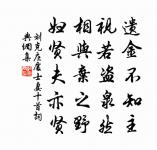 遗金不知主
视若盗泉然
相與棄之野
妇贤夫亦贤
刘克庄处士妻十首词
典网集